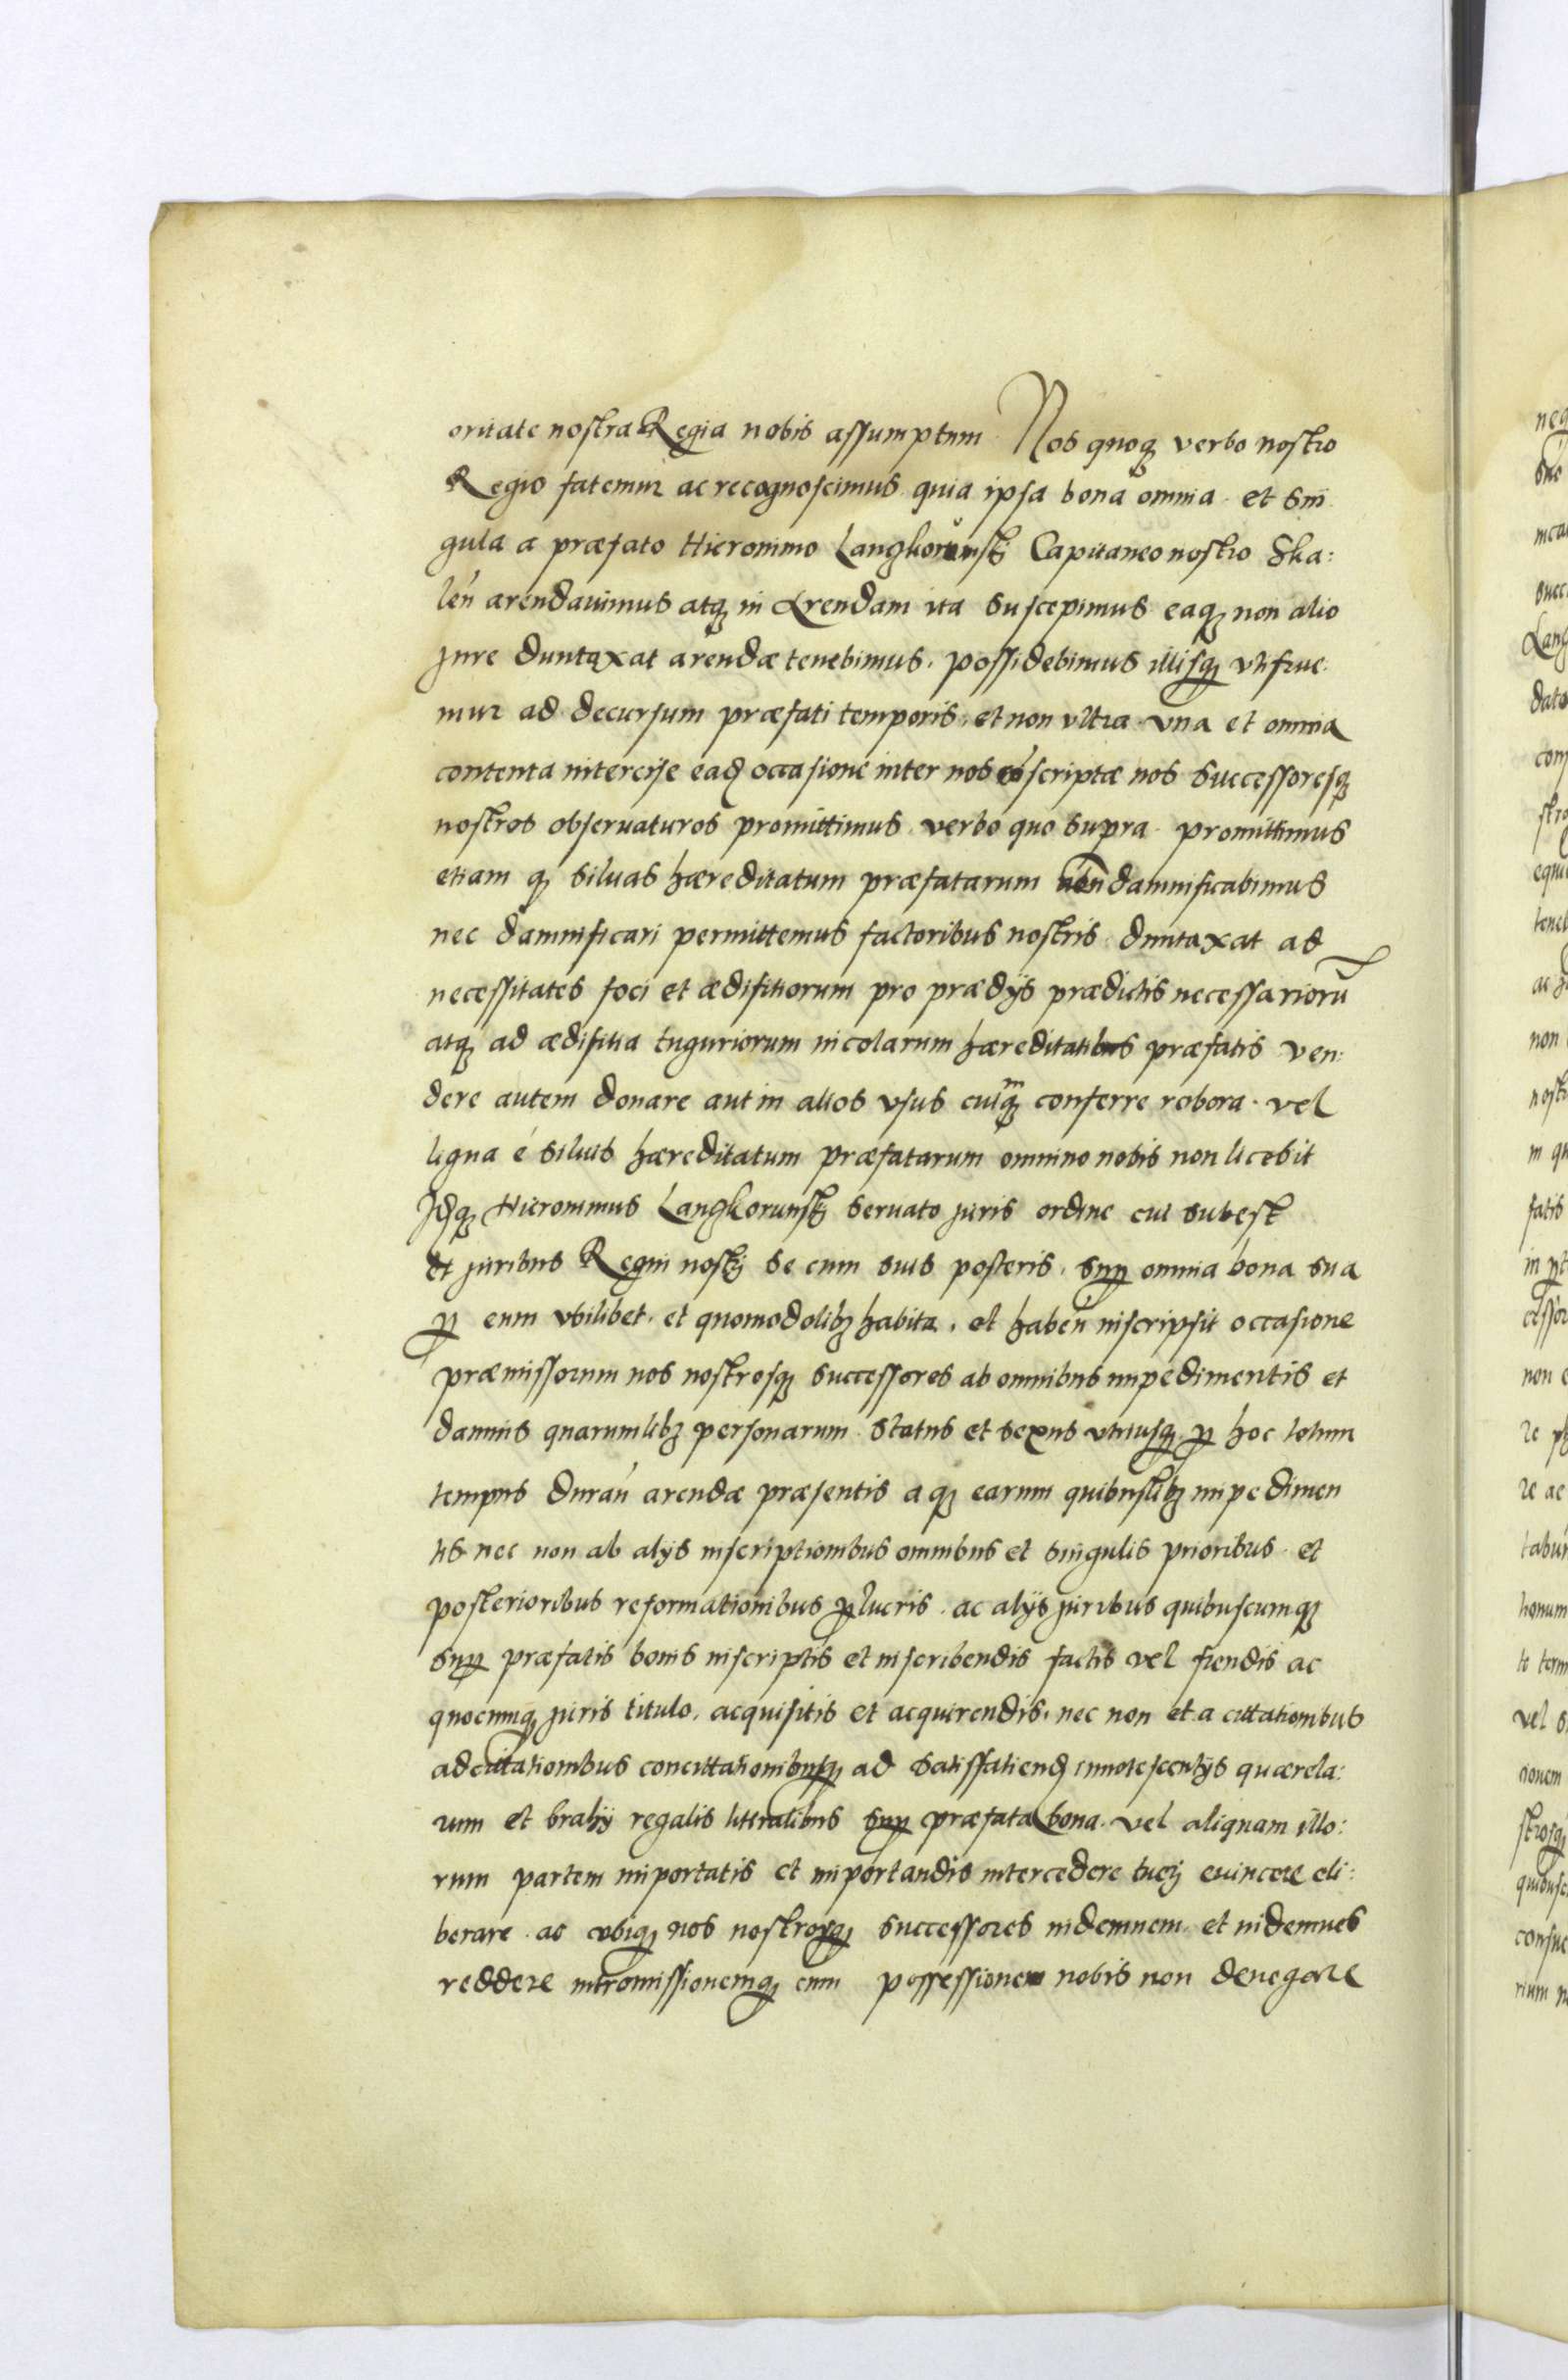 oritate nostra Regia nobis assumptum Nos quoqꝫ verbo nostro
Regio fatemur ac recognoscimus quia ipsa bona omnia et sin
gula a præfato Hieronimo Langkorunskj Capitaneo nostro Ska:
leń arendauimus atqꝫ in Arendam ita suscepimus eaqꝫ non alio
jure duntaxat arendæ tenebimus, possidebimus illisqꝫ vtifrue
mur ad decursum præfati temporis, et non vltra vna et omnia
contenta intercise eaḍ occasione inter nos cōscriptæ nos successoresqꝫ
nostros obseruaturos promittimus verbo quo supra promittimus
etiam qꝫ siluas hæreditatum præfatarum non damnificabimus
nec damnificari permittemus factoribus nostris duntaxat ad
necessitates foci et ædifitiorum pro prædijs prædictis necessariorū
atqꝫ ad ædifitia tuguriorum incolarum hæreditatibus præfatis ven:
dere autem donare aut in alios vsus cuiqꝫm conferre robora vel
ligna é siluis hæreditatum præfatarum omnino nobis non licebit
Idqꝫ Hieronimus Langkorunskj seruato juris ordine cui subest
et juribus Regni nostrj se cum suis posteris, suꝑ omnia bona sua
ꝑ eum vbilibet et quomodolibꝫ habita, et habeń inscripsit occasione
præmissorum nos nostrosqꝫ successores ab omnibus impedimentis et
damnis quarumlibꝫ personarum status et sexus vtriusqꝫ ꝑ hoc totum
tempus durań arendæ præsentis a qꝫ earum quibuslibꝫ impedimen
tis nec non ab alijs inscriptionibus omnibus et singulis prioribus et
posterioribus reformationibus ꝑlucris ac alijs juribus quibuscumqꝫ
suꝑ præfatis bonis inscriptis et inscribendis factis vel fiendis ac
quocumqꝫ juris titulo, acquisitis et acquirendis, nec non et a cittationibus
adcitationibus concittationibusqꝫ ad satisfatienḍ innotescentijs quærela:
rum et brahij regalis litteralibus suꝑ præfata bona vel aliquam illo:
rum partem importatis et importandis intercedere tuerj euincere eli:
berare ac vbiqꝫ nos nostrosqꝫ successores indemnem et indemnes
reddere intromissionemqꝫ cum possessione nobis non denegare